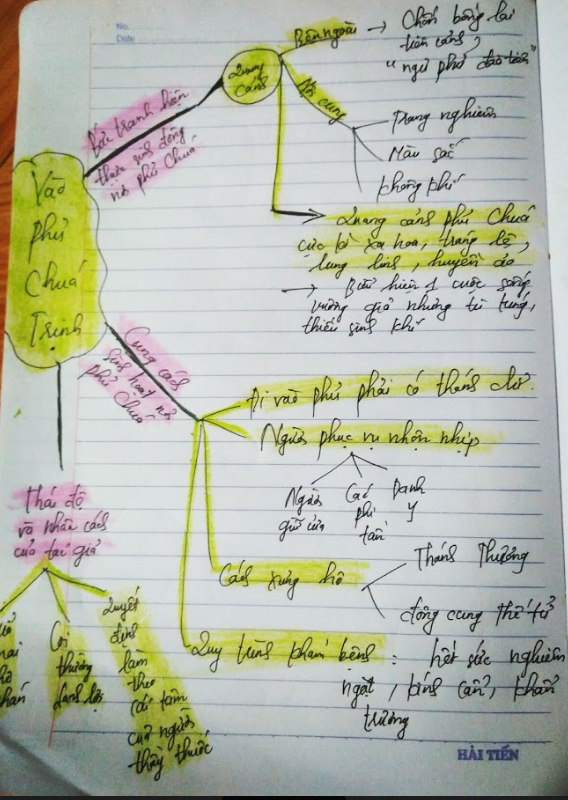 No.
Date
Vào
phủ
Chúa
Trịnh
Bức tranh hiện
thực sinh động
nơi phủ Chúa
Quang
cảnh
Bên ngoài → Chốn bồng lai
tiên cảnh,
"ngư phủ đào nguyên"
Nội cung
Trang nghiêm
Màu sắc
Không khí
→ Quang cảnh phủ Chúa
cực kì xa hoa, tráng lệ,
lung linh, huyền ảo
→ Biểu hiện 1 cuộc sống
vương giả nhưng tù túng,
thiếu sinh khí
Cung cách
sinh hoạt nơi
phủ Chúa
Đi vào phủ phải có thánh chỉ.
Người phục vụ nhộn nhịp
Người
giữ cửa
Các
phi
tần
Danh
y
Cách xưng hô
Thánh Thượng
đông cung thế tử
Quy trình khám bệnh: hết sức nghiêm
ngặt, kính cẩn, khẩn
trương
Thái độ
và nhân cách
của tác giả
Coi
thường
danh lợi
Quyết
định
làm
theo
cái tâm
của người
thầy thuốc
HẢI TIẾN